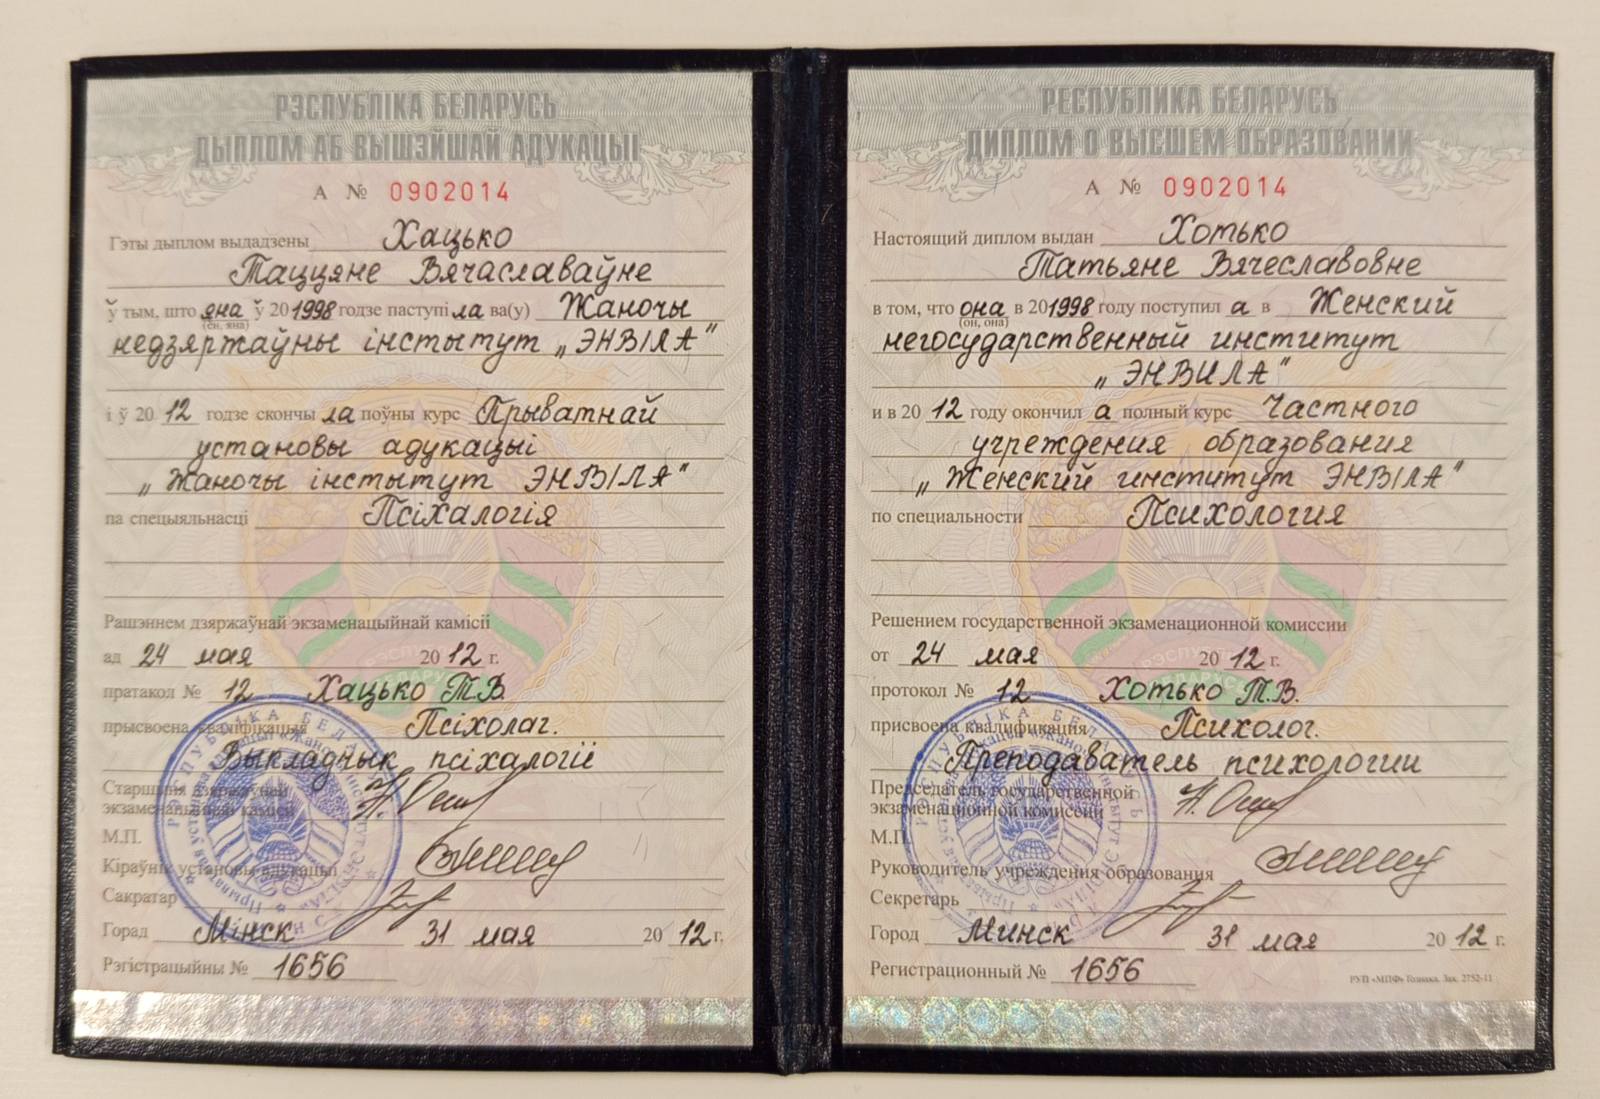 РЭСПУБЛІКА БЕЛАРУСЬ
ДЫПЛОМ АБ ВЫШЭЙШАЙ АДУКАЦЫІ
А № 0902014
Гэты дыплом выдадзены Хацько
Таццяне Вячаславаўне
ў тым, што яна ў 201998 годзе паступіла ва(у) Жаночы
(ён, яна)
недзяржаўны інстытут „ЭНВІЛА"
і ў 2012 годзе скончыла поўны курс Прыватнай
установы адукацыі
„Жаночы інстытут ЭНВІЛА"
па спецыяльнасці Псіхалогія
Рашэннем дзяржаўнай экзаменацыйнай камісіі
ад 24 мая 2012 г.
пратакол № 12 Хацько Т.В.
прысвоена кваліфікацыя Псіхолаг.
Выкладчык псіхалогіі
Старшыня дзяржаўнай
экзаменацыйнай камісіі
М.П.
Кіраўнік установы адукацыі
Сакратар
Горад Мінск 31 мая 2012 г.
Рэгістрацыйны № 1656
РЕСПУБЛИКА БЕЛАРУСЬ
ДИПЛОМ О ВЫСШЕМ ОБРАЗОВАНИИ
А № 0902014
Настоящий диплом выдан Хотько
Татьяне Вячеславовне
в том, что она в 201998 году поступила в Женский
(он, она)
негосударственный институт
„ЭНВИЛА"
и в 2012 году окончила полный курс Частного
учреждения образования
„Женский институт ЭНВІЛА"
по специальности Психология
Решением государственной экзаменационной комиссии
от 24 мая 2012 г.
протокол № 12 Хотько Т.В.
присвоена квалификация Психолог.
Преподаватель психологии
Председатель государственной
экзаменационной комиссии
М.П.
Руководитель учреждения образования
Секретарь
Город Минск 31 мая 2012 г.
Регистрационный № 1656
РУП «МПФ» Гознака. Зак. 2752-11